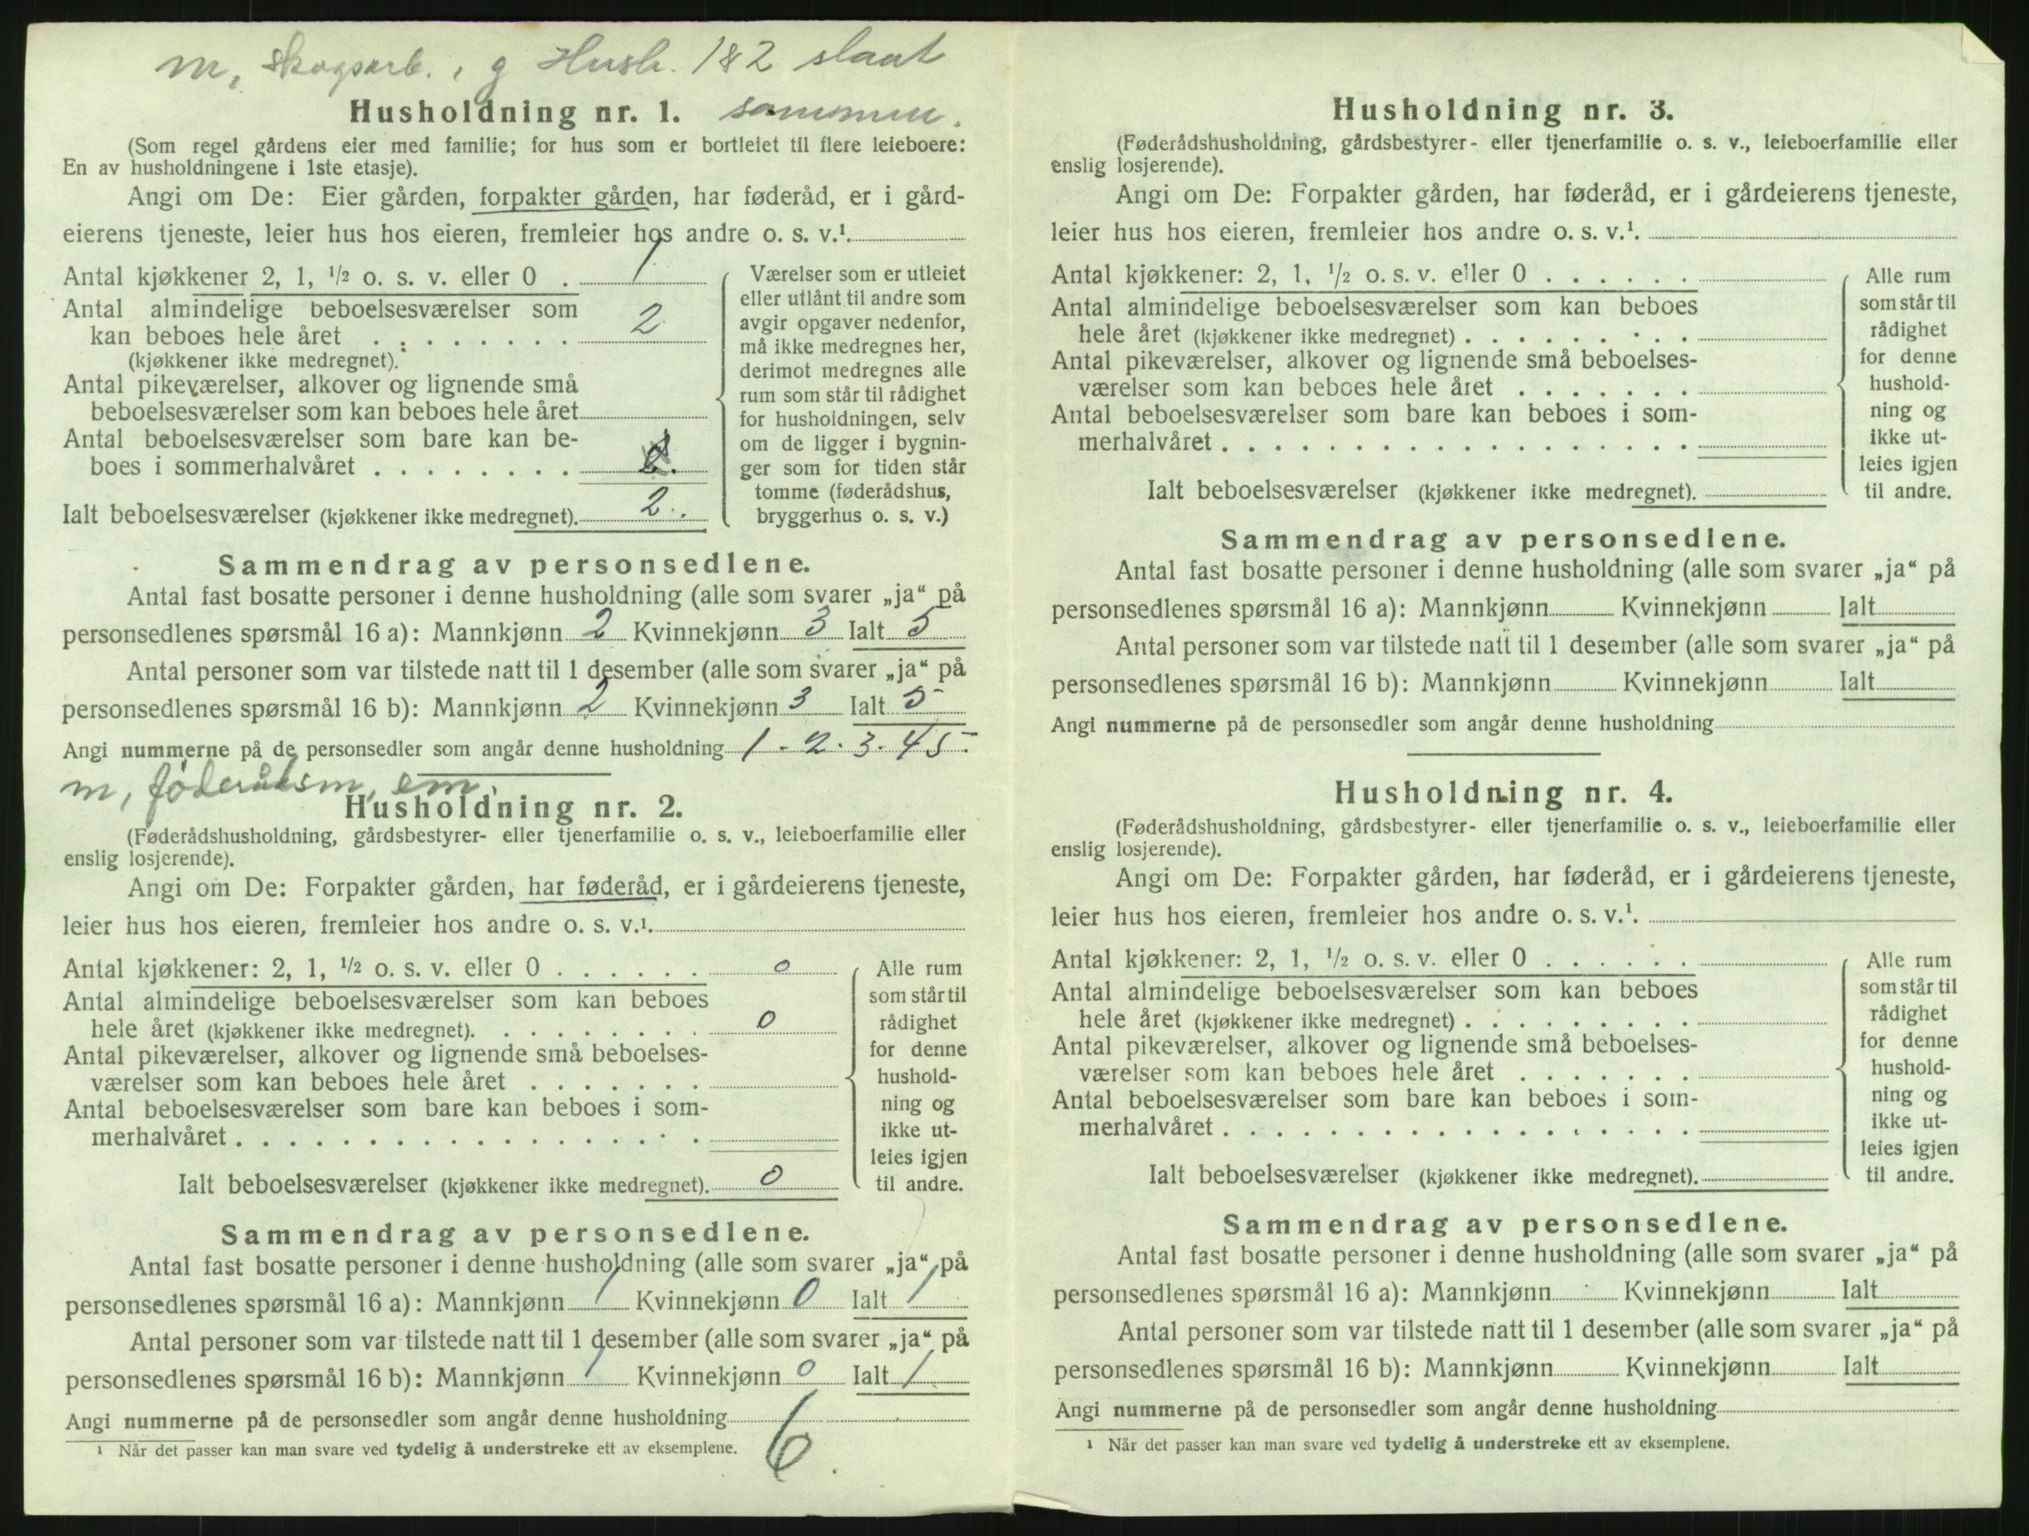 m, skogsarb., g Hush. 1&2 slaat
Husholdning nr. 1. sammen.
(Som regel gårdens eier med familie; for hus som er bortleiet til flere leieboere:
En av husholdningene i 1ste etasje).
Angi om De: Eier gården, forpakter gården, har føderåd, er i gård-
eierens tjeneste, leier hus hos eieren, fremleier hos andre o. s. v.¹.
Antal kjøkkener 2, 1, ½ o. s. v. eller 0 . 1
Antal almindelige beboelsesværelser som
kan beboes hele året . . . . . . . 2
(kjøkkener ikke medregnet).
Antal pikeværelser, alkover og lignende små
beboelsesværelser som kan beboes hele året
Antal beboelsesværelser som bare kan be-
boes i sommerhalvåret . . . . . . .
Ialt beboelsesværelser (kjøkkener ikke medregnet). 2.
Værelser som er utleiet
eller utlånt til andre som
avgir opgaver nedenfor,
må ikke medregnes her,
derimot medregnes alle
rum som står til rådighet
for husholdningen, selv
om de ligger i bygnin-
ger som for tiden står
tomme (føderådshus,
bryggerhus o. s. v.)
Sammendrag av personsedlene.
Antal fast bosatte personer i denne husholdning (alle som svarer „ja“ på
personsedlenes spørsmål 16 a): Mannkjønn 2 Kvinnekjønn 3 Ialt 5
Antal personer som var tilstede natt til 1 desember (alle som svarer „ja“ på
personsedlenes spørsmål 16 b): Mannkjønn 2 Kvinnekjønn 3 Ialt 5
Angi nummerne på de personsedler som angår denne husholdning 1-2-3-4 5.
m, føderådsm, em.
Husholdning nr. 2.
(Føderådshusholdning, gårdsbestyrer- eller tjenerfamilie o. s. v., leieboerfamilie eller
enslig losjerende).
Angi om De: Forpakter gården, har føderåd, er i gårdeierens tjeneste,
leier hus hos eieren, fremleier hos andre o. s. v.¹.
Antal kjøkkener: 2, 1, ½ o. s. v. eller 0 . . . . . . 0
Antal almindelige beboelsesværelser som kan beboes
hele året (kjøkkener ikke medregnet). . . . . . . . . 0
Antal pikeværelser, alkover og lignende små beboelses-
værelser som kan beboes hele året . . . . . . .
Antal beboelsesværelser som bare kan beboes i som-
merhalvåret . . . . . . . . . . . . . . . . . .
Ialt beboelsesværelser (kjøkkener ikke medregnet). 0
Alle rum
som står til
rådighet
for denne
hushold-
ning og
ikke ut-
leies igjen
til andre.
Sammendrag av personsedlene.
Antal fast bosatte personer i denne husholdning (alle som svarer „ja“ på
personsedlenes spørsmål 16 a): Mannkjønn 1 Kvinnekjønn 0 Ialt 1
Antal personer som var tilstede natt til 1 desember (alle som svarer „ja“ på
personsedlenes spørsmål 16 b): Mannkjønn 1 Kvinnekjønn 0 Ialt 1
Angi nummerne på de personsedler som angår denne husholdning 6.
¹ Når det passer kan man svare ved tydelig å understreke ett av eksemplene.
Husholdning nr. 3.
(Føderådshusholdning, gårdsbestyrer- eller tjenerfamilie o. s. v., leieboerfamilie eller
enslig losjerende).
Angi om De: Forpakter gården, har føderåd, er i gårdeierens tjeneste,
leier hus hos eieren, fremleier hos andre o. s. v.¹.
Antal kjøkkener: 2, 1, ½ o. s. v. eller 0 . . . . . .
Antal almindelige beboelsesværelser som kan beboes
hele året (kjøkkener ikke medregnet) . . . . . . . . .
Antal pikeværelser, alkover og lignende små beboelses-
værelser som kan beboes hele året . . . . . . .
Antal beboelsesværelser som bare kan beboes i som-
merhalvåret . . . . . . . . . . . . . . . . . .
Ialt beboelsesværelser (kjøkkener ikke medregnet).
Alle rum
som står til
rådighet
for denne
hushold-
ning og
ikke ut-
leies igjen
til andre.
Sammendrag av personsedlene.
Antal fast bosatte personer i denne husholdning (alle som svarer „ja“ på
personsedlenes spørsmål 16 a): Mannkjønn Kvinnekjønn Ialt
Antal personer som var tilstede natt til 1 desember (alle som svarer „ja“ på
personsedlenes spørsmål 16 b): Mannkjønn Kvinnekjønn Ialt
Angi nummerne på de personsedler som angår denne husholdning
Husholdning nr. 4.
(Føderådshusholdning, gårdsbestyrer- eller tjenerfamilie o. s. v., leieboerfamilie eller
enslig losjerende).
Angi om De: Forpakter gården, har føderåd, er i gårdeierens tjeneste,
leier hus hos eieren, fremleier hos andre o. s. v.¹.
Antal kjøkkener: 2, 1, ½ o. s. v. eller 0 . . . . . .
Antal almindelige beboelsesværelser som kan beboes
hele året (kjøkkener ikke medregnet) . . . . . . . . .
Antal pikeværelser, alkover og lignende små beboelses-
værelser som kan beboes hele året . . . . . . .
Antal beboelsesværelser som bare kan beboes i som-
merhalvåret . . . . . . . . . . . . . . . . . .
Ialt beboelsesværelser (kjøkkener ikke medregnet).
Alle rum
som står til
rådighet
for denne
hushold-
ning og
ikke ut-
leies igjen
til andre.
Sammendrag av personsedlene.
Antal fast bosatte personer i denne husholdning (alle som svarer „ja“ på
personsedlenes spørsmål 16 a): Mannkjønn Kvinnekjønn Ialt
Antal personer som var tilstede natt til 1 desember (alle som svarer „ja“ på
personsedlenes spørsmål 16 b): Mannkjønn Kvinnekjønn Ialt
Angi nummerne på de personsedler som angår denne husholdning
¹ Når det passer kan man svare ved tydelig å understreke ett av eksemplene.